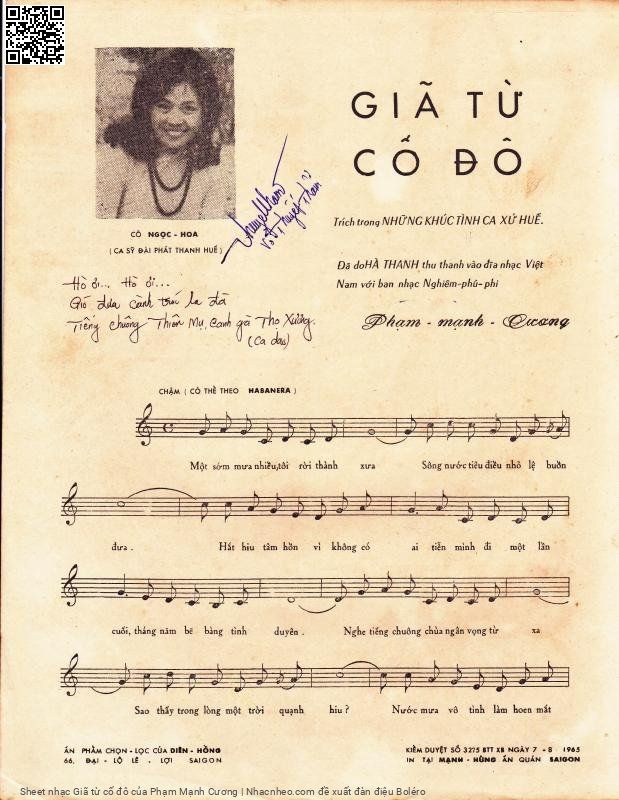 GIÃ TỪ
CỐ ĐÔ
CÔ NGỌC - HOA
( CA SỸ ĐÀI PHÁT THANH HUẾ )
Trích trong NHỮNG KHÚC TÌNH CA XỨ HUẾ.
Đã do HÀ THANH thu thanh vào đĩa nhạc Việt
Nam với ban nhạc Nghiêm-phú-phi
Phạm - mạnh - Cương
Hò ơi... Hò ơi...
Gió đưa cành trúc la đà
Tiếng chuông Thiên Mụ, canh gà Thọ Xương.
(Ca dao)
CHẬM ( CÓ THỂ THEO HABANERA )
Một sớm mưa nhiều,tôi rời thành xưa Sông nước tiêu điều nhỏ lệ buồn
đưa . Hắt hiu tâm hồn vì không có ai tiễn mình đi một lần
cuối, tháng năm bẽ bàng tình duyên . Nghe tiếng chuông chùa ngân vọng từ xa
Sao thấy trong lòng một trời quạnh hiu ? Nước mưa vô tình làm hoen mắt
ẤN PHẨM CHỌN - LỌC CỦA DIÊN - HỒNG
66, ĐẠI - LỘ LÊ - LỢI SAIGON
KIỂM DUYỆT SỐ 3275 BTT XB NGÀY 7 - 8 - 1965
IN TẠI MẠNH - HÙNG ẤN QUÁN SAIGON
Sheet nhạc Giã từ cố đô của Phạm Mạnh Cương | Nhacnheo.com đề xuất đàn điệu Boléro